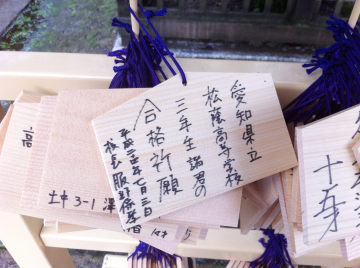 愛知県立
松蔭高等学校
三年生諸君の
合格祈願
平成二十五年七月三日
校長
高
土中 3-1 澤
十五才